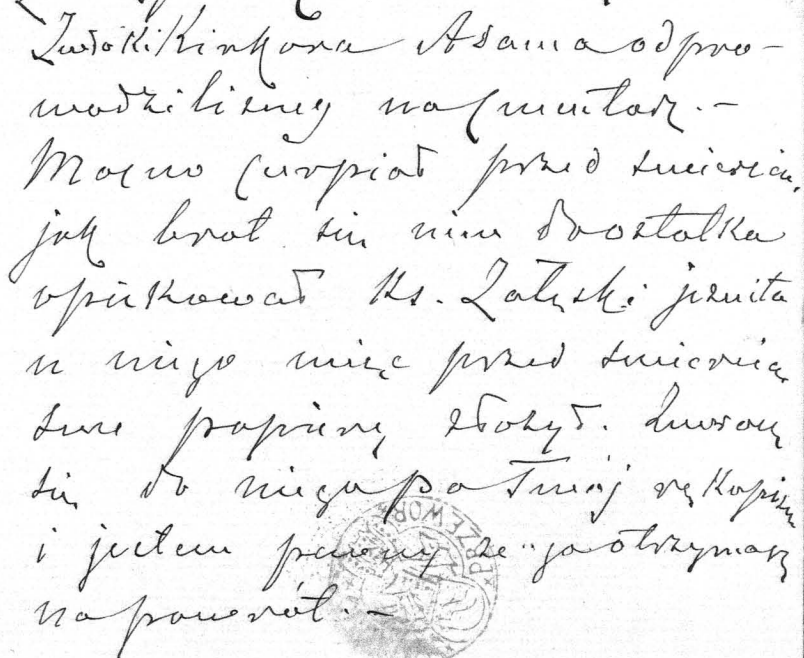 Zwłoki Kirkora Adama odpro-
wadziliśmy na Cmentarz. -
Mocno cierpiał przed śmiercią,
jak brat się nim do ostatka
opiekował Ks. Załęski jezuita
u niego więc przed śmiercią
swe papiery złożył. Zwrócę
się do niego po Twój rękopism
i jestem pewny że go otrzymasz
na powrót. -
PRZEWOR